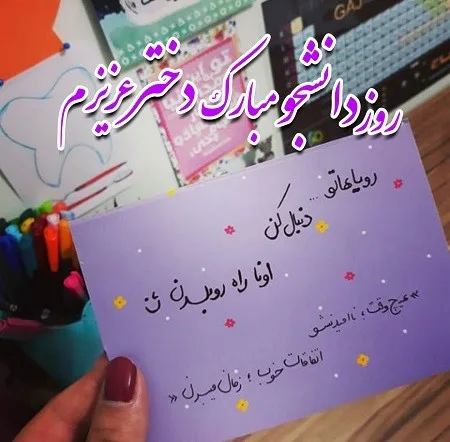 روز دانشجو مبارک دختر عزیزم
GAJ
رویاهاتو ...
دنبال کن
اونا راه رو بلدن
»هیچ وقت؛ ناامید نشو
اتفاقات خوب؛ زمان میبرن«